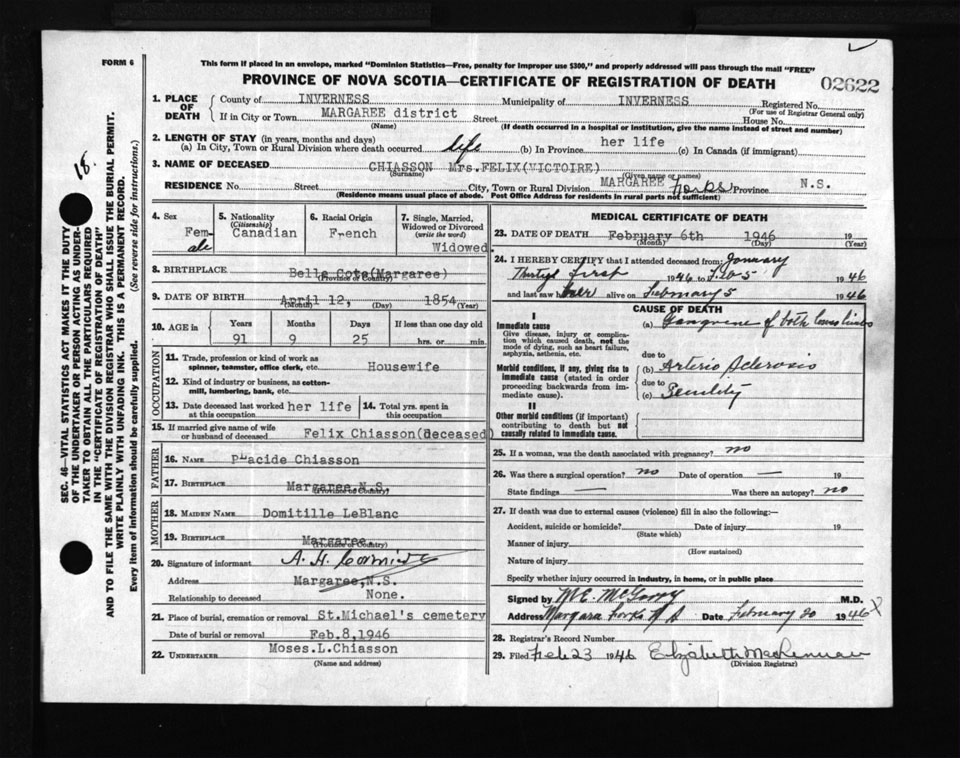 FORM 6
This form if placed in an envelope, marked "Dominion Statistics—Free, penalty for improper use $300," and properly addressed will pass through the mail "FREE"
PROVINCE OF NOVA SCOTIA—CERTIFICATE OF REGISTRATION OF DEATH
02622
1. PLACE OF DEATH
County of INVERNESS Municipality of INVERNESS Registered No.
(For use of Registrar General only)
If in City or Town MARGAREE district Street House No.
(Name) (If death occurred in a hospital or institution, give the name instead of street and number)
2. LENGTH OF STAY (in years, months and days)
(a) In City, Town or Rural Division where death occurred life (b) In Province her life (c) In Canada (if immigrant)
3. NAME OF DECEASED CHIASSON Mrs.FELIX(VICTOIRE)
(Surname) (Given name or names)
RESIDENCE No. Street City, Town or Rural Division MARGAREE Forks Province N.S.
(Residence means usual place of abode. Post Office Address for residents in rural parts not sufficient)
4. Sex
Female
5. Nationality
(Citizenship)
Canadian
6. Racial Origin
French
7. Single, Married, Widowed or Divorced
(write the word)
Widowed
8. BIRTHPLACE Belle Cote(Margaree)
(Province or Country)
9. DATE OF BIRTH April 12, 1854
(Month) (Day) (Year)
10. AGE in Years Months Days If less than one day old
91 9 25 hrs. or min.
OCCUPATION
11. Trade, profession or kind of work as spinner, teamster, office clerk, etc. Housewife
12. Kind of industry or business, as cotton-mill, lumbering, bank, etc.
13. Date deceased last worked at this occupation her life
14. Total yrs. spent in this occupation
15. If married give name of wife or husband of deceased Felix Chiasson(deceased)
FATHER
16. NAME Placide Chiasson
17. BIRTHPLACE Margaree,N.S.
(Province or Country)
MOTHER
18. MAIDEN NAME Domitille LeBlanc
19. BIRTHPLACE Margaree.
(Province or Country)
20. Signature of informant A. H. Cormier
Address Margaree,N.S.
Relationship to deceased None.
21. Place of burial, cremation or removal St.Michael's cemetery
Date of burial or removal Feb.8,1946
22. UNDERTAKER Moses.L.Chiasson
(Name and address)
MEDICAL CERTIFICATE OF DEATH
23. DATE OF DEATH February 6th 1946 19
(Month) (Day) (Year)
24. I HEREBY CERTIFY that I attended deceased from: January
Thirty first 1946 to Feb 5 1946
and last saw her alive on February 5 1946
CAUSE OF DEATH
I
Immediate cause
Give disease, injury or complication which caused death, not the mode of dying, such as heart failure, asphyxia, asthenia, etc.
(a) Gangrene of both lower limbs
due to
Morbid conditions, if any, giving rise to immediate cause (stated in order proceeding backwards from immediate cause).
(b) Arterio Sclerosis
due to
(c) Senility
II
Other morbid conditions (if important) contributing to death but not causally related to immediate cause.
25. If a woman, was the death associated with pregnancy? no
26. Was there a surgical operation? no Date of operation — 19
State findings — Was there an autopsy? no
27. If death was due to external causes (violence) fill in also the following:—
Accident, suicide or homicide? Date of injury 19
(State which)
Manner of injury
(How sustained)
Nature of injury
Specify whether injury occurred in industry, in home, or in public place
Signed by M.E. McGarry M.D.
Address Margaree Forks N S Date February 20 1946
28. Registrar's Record Number
29. Filed Feb 23 1946 Elizabeth MacLennan
(Division Registrar)
18.
SEC. 46—VITAL STATISTICS ACT MAKES IT THE DUTY
OF THE UNDERTAKER OR PERSON ACTING AS UNDER-
TAKER TO OBTAIN ALL THE PARTICULARS REQUIRED
IN THE "CERTIFICATE OF REGISTRATION OF DEATH"
AND TO FILE THE SAME WITH THE DIVISION REGISTRAR WHO SHALL ISSUE THE BURIAL PERMIT.
WRITE PLAINLY WITH UNFADING INK. THIS IS A PERMANENT RECORD.
Every item of information should be carefully supplied. (See reverse side for instructions.)